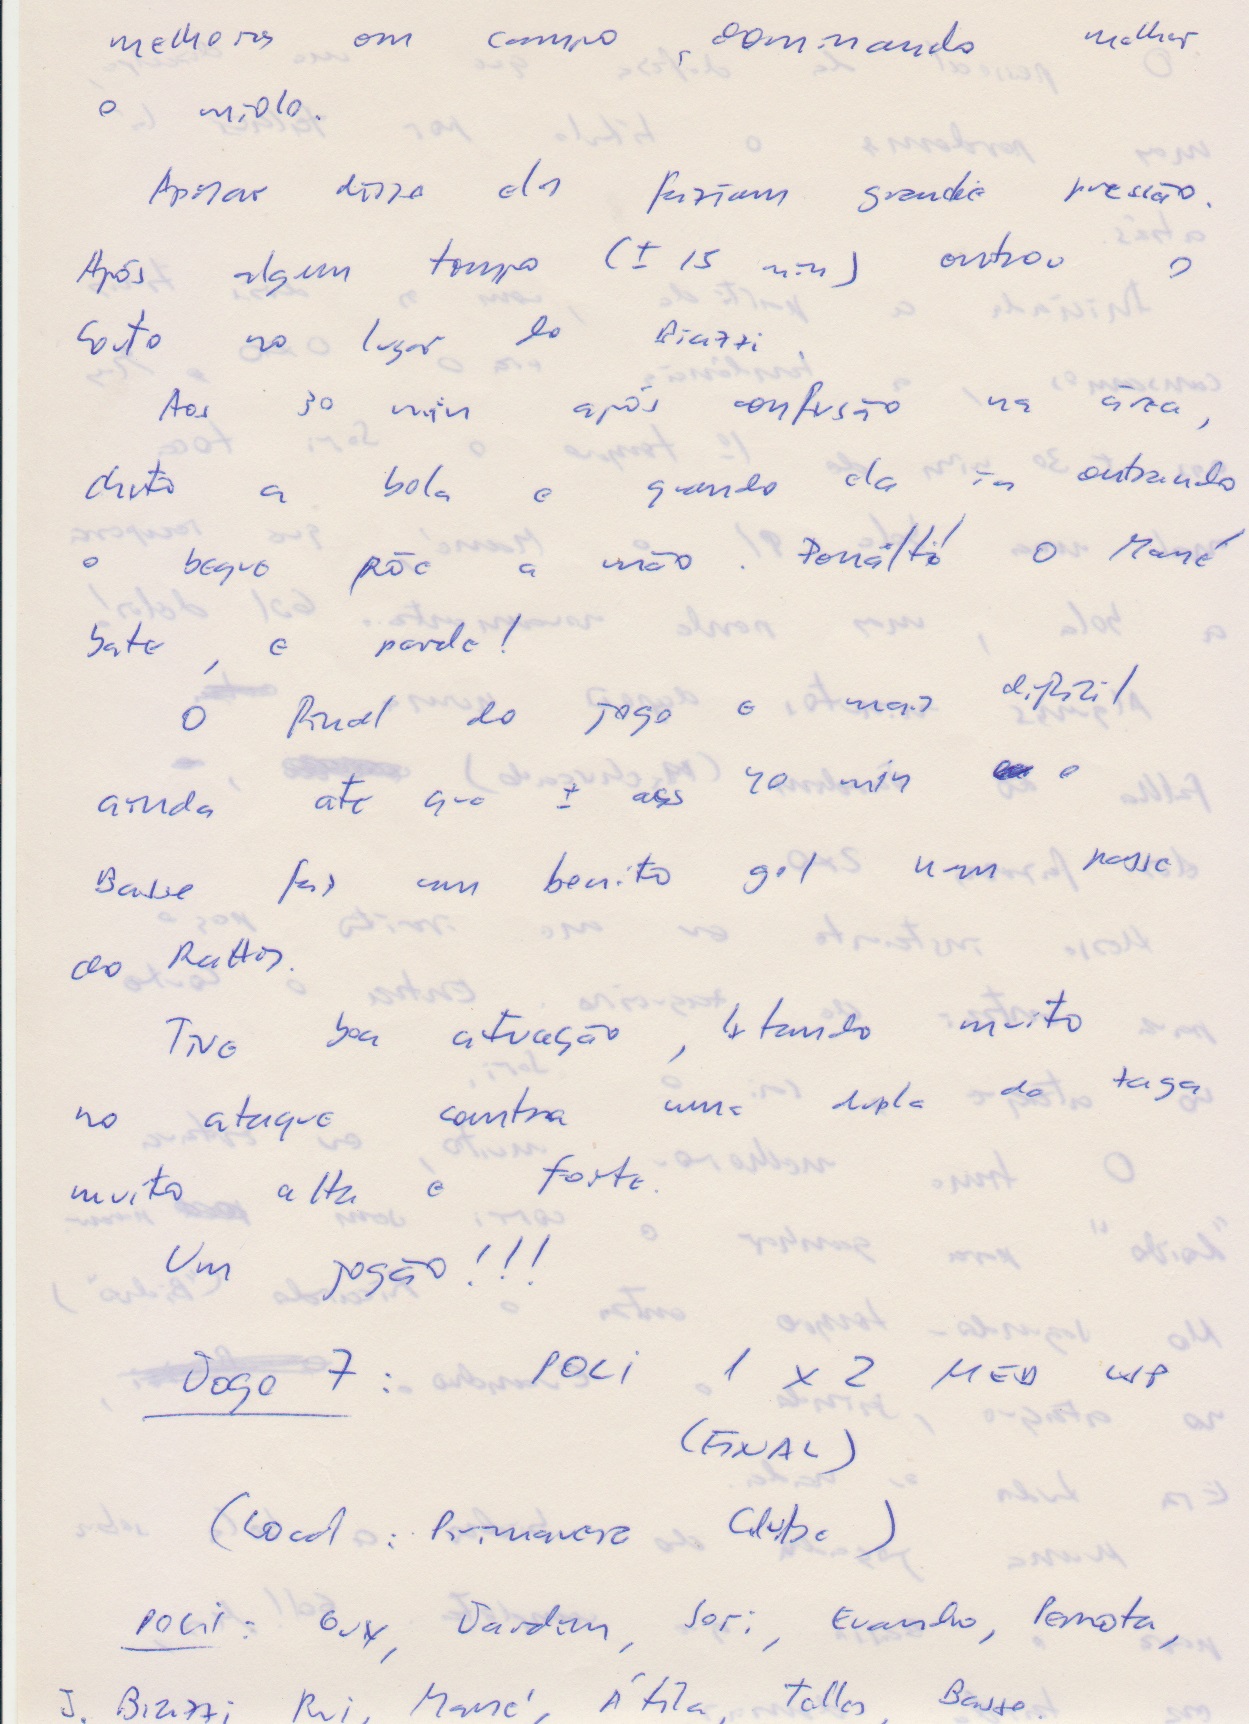 melhores em campo, dominando melhor
o miolo.
Apesar disso eles faziam grande pressão.
Após algum tempo (± 15 min) entrou o
Couto no lugar do Biazzi
Aos 30 min após confusão na área,
chuto a bola e quando ela ia entrando
o beque põe a mão. Penâlti! O Mané
bate, e perde!
O final do jogo e mais difícil
ainda até que ± aos 40 min o
Basse faz um bonito gol num passe
do
Tive boa atuação, lutando muito
no ataque contra uma dupla de zaga
muito alta e forte.
Um jogão!!!
Jogo 7: POLI 1 x 2 MED USP
(FINAL)
(Local: Primavera Clube)
POLI: Guy, Jardim, Sori, Evandro, Pernota,
J. Biazzi, Rui, Mané, Átila, Basso.